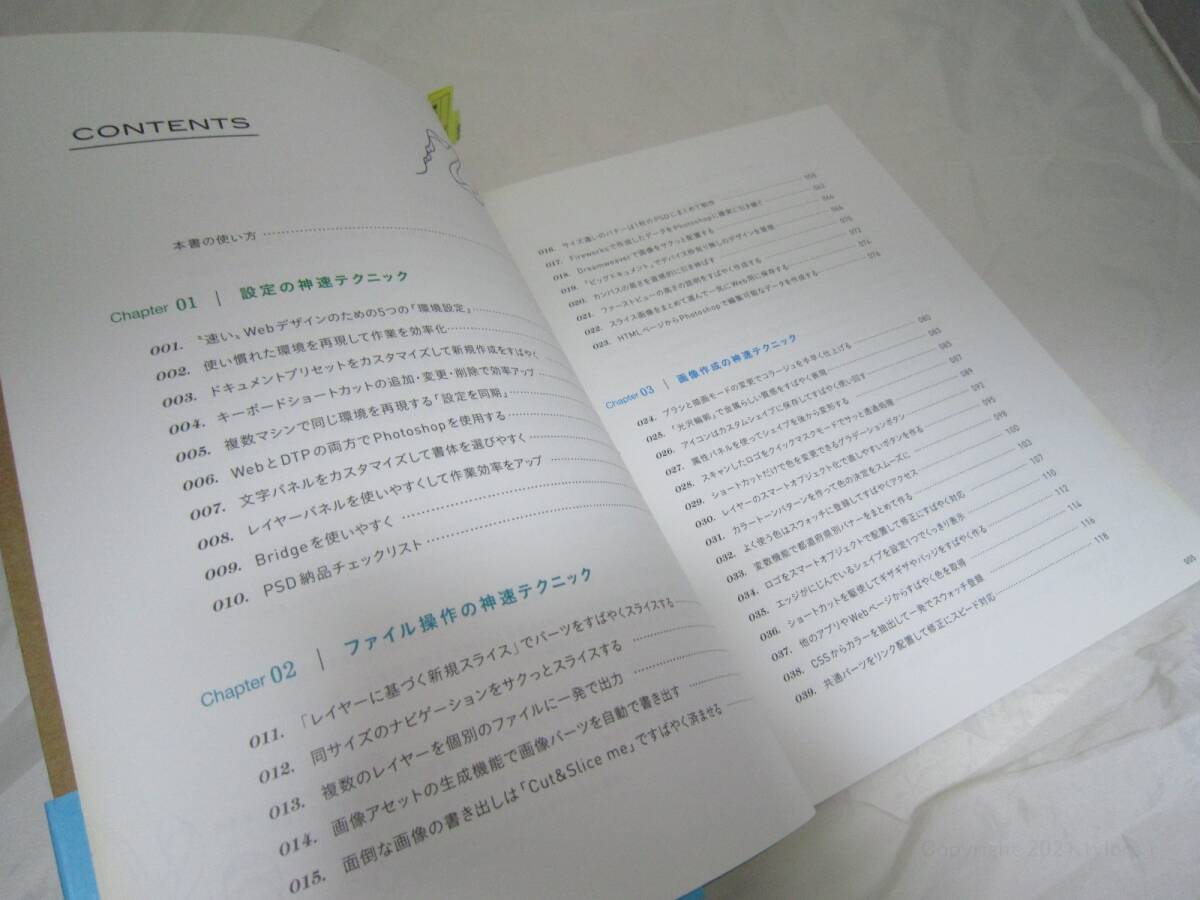 CONTENTS
本書の使い方
Chapter 01 | 設定の神速テクニック
001. “速い„Webデザインのための5つの「環境設定」
002. 使い慣れた環境を再現して作業を効率化
003. ドキュメントプリセットをカスタマイズして新規作成をすばやく
004. キーボードショートカットの追加・変更・削除で効率アップ
005. 複数マシンで同じ環境を再現する「設定を同期」
006. WebとDTPの両方でPhotoshopを使用する
007. 文字パネルをカスタマイズして書体を選びやすく
008. レイヤーパネルを使いやすくして作業効率をアップ
009. Bridgeを使いやすく
010. PSD納品チェックリスト
Chapter 02 | ファイル操作の神速テクニック
011. 「レイヤーに基づく新規スライス」でパーツをすばやくスライスする
012. 同サイズのナビゲーションをサクっとスライスする
013. 複数のレイヤーを個別のファイルに一発で出力
014. 画像アセットの生成機能で画像パーツを自動で書き出す
015. 面倒な画像の書き出しは「Cut&Slice me」ですばやく済ませる
016. サイズ違いのバナーは1枚のPSDにまとめて制作 058
017. Fireworksで作成したデータをPhotoshopに確実に引き継ぐ 062
018. Dreamweaverで画像をサクッと配置する 064
019. 「ビッグドキュメント」でデバイス枠取り無しのデザインを管理 066
020. カンバスの高さを直感的に引き伸ばす 070
021. ファーストビューの高さの説明をすばやく作成する 072
022. スライス画像をまとめて選んで一気にWeb用に保存する 074
023. HTMLページからPhotoshopで編集可能なデータを作成する 076
Chapter 03 | 画像作成の神速テクニック
024. ブラシと描画モードの変更でコラージュを手早く仕上げる 080
025. 「光沢輪郭」で金属らしい質感をすばやく表現 083
026. アイコンはカスタムシェイプに保存してすばやく使い回す 085
027. 属性パネルを使ってシェイプを後から変形する 087
028. スキャンしたロゴをクイックマスクモードでサッと透過処理 089
029. ショートカットだけで色を変更できるグラデーションボタン 092
030. レイヤーのスマートオブジェクト化で直しやすいボタンを作る 095
031. カラートーンパターンを作って色の決定をスムーズに 099
032. よく使う色はスウォッチに登録してすばやくアクセス 100
033. 変数機能で都道府県別バナーをまとめて作る 103
034. ロゴをスマートオブジェクトで配置して修正にすばやく対応 107
035. エッジがにじんでいるシェイプを設定1つでくっきり表示 110
036. ショートカットを駆使してギザギザやバッジをすばやく作る 112
037. 他のアプリやWebページからすばやく色を取得 114
038. CSSからカラーを抽出して一発でスウォッチ登録 116
039. 共通パーツをリンク配置して修正にスピード対応 118
005